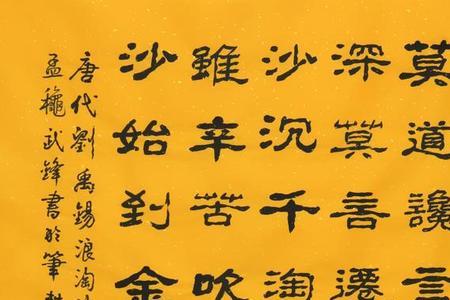 莫道讒言
深莫言遷
沙沉千淘
雖辛苦吹
沙始到金
唐代劉禹錫浪淘
孟龝武鋒書於筆